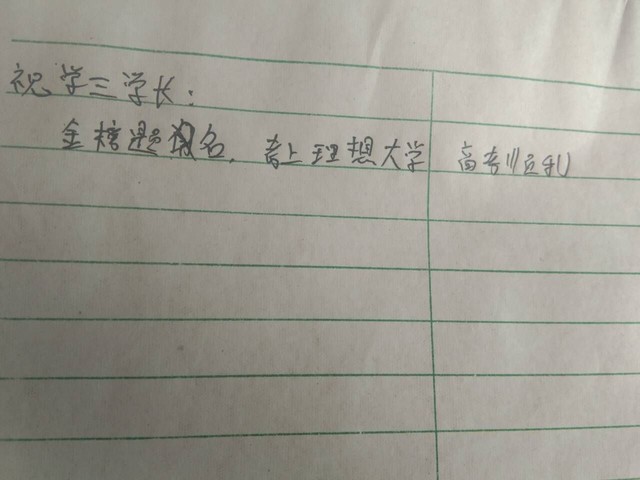 祝学三学长:
金榜题名,考上理想大学 高考顺利